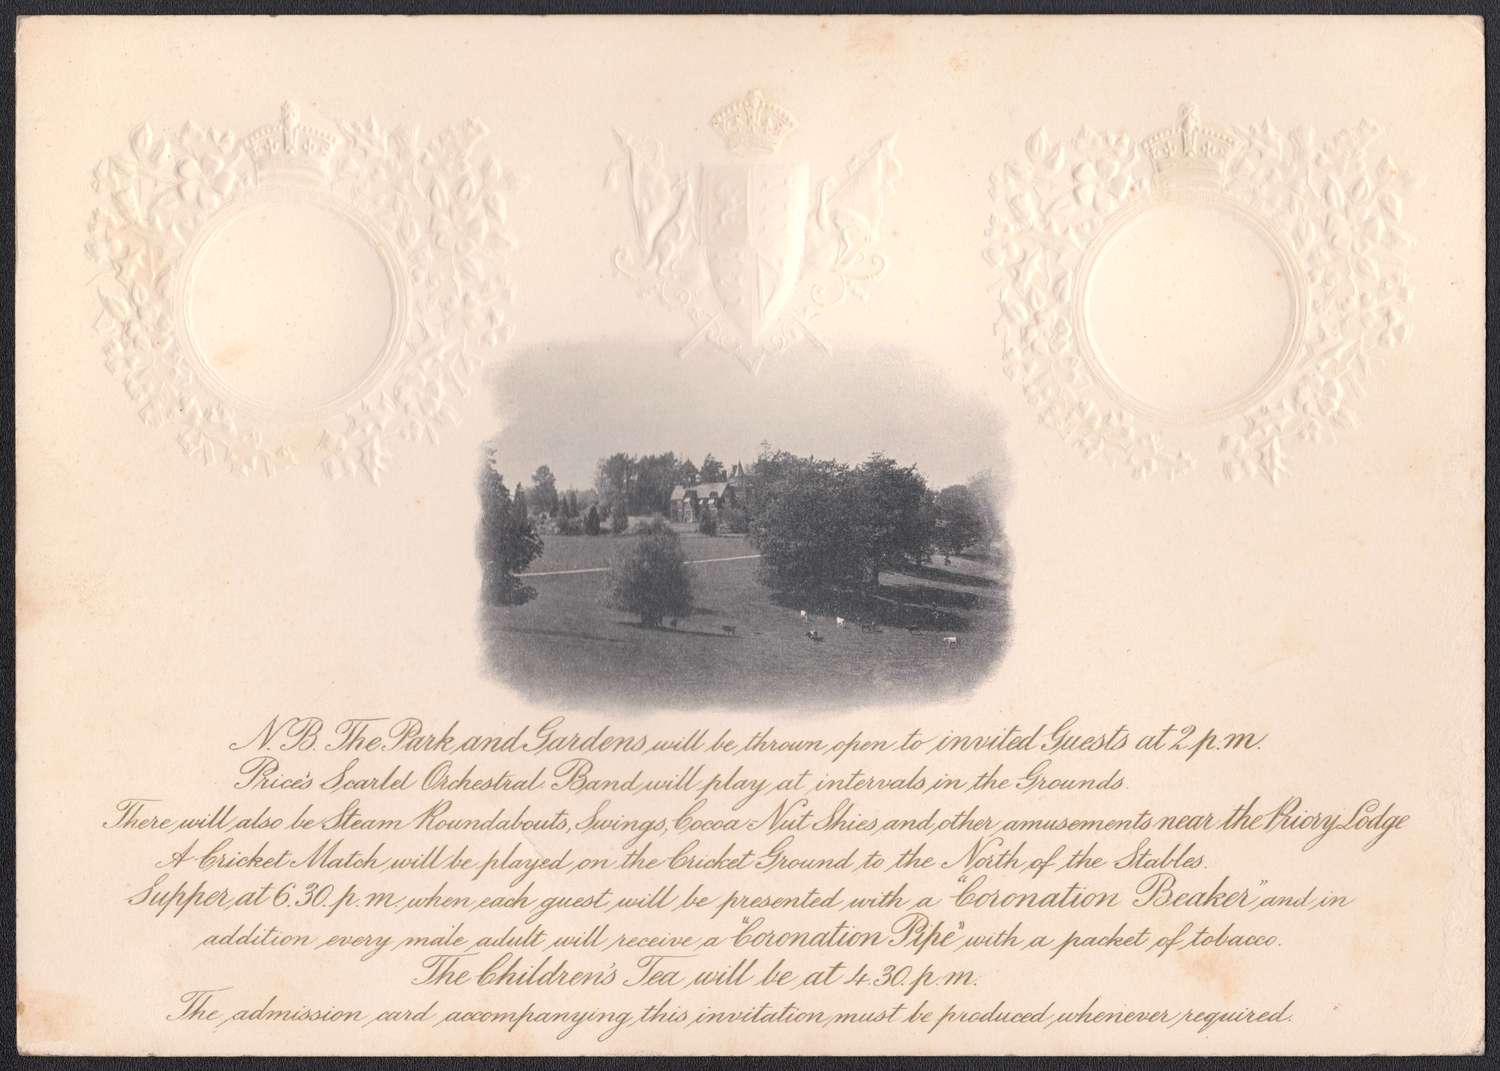 N.B. The Park and Gardens will be thrown open to invited Guests at 2 p.m.
Price's Scarlet Orchestral Band will play at intervals in the Grounds.
There will also be Steam Roundabouts, Swings, Cocoa Nut Shies, and other amusements near the Priory Lodge
A Cricket Match will be played on the Cricket Ground to the North of the Stables.
Supper at 6.30. p.m. when each guest will be presented with a "Coronation Beaker" and in
addition every male adult will receive a "Coronation Pipe" with a packet of tobacco.
The Children's Tea will be at 4.30. p.m.
The admission card accompanying this invitation must be produced whenever required.